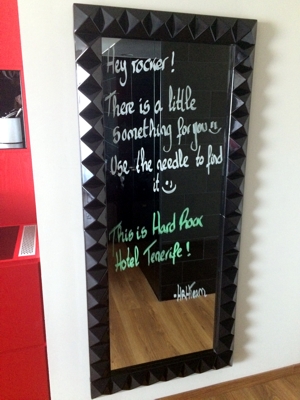 Hey rocker!
There is a little
something for you
Use the needle to find
it
This is Hard Rock
Hotel Tenerife!
-HRHTeam